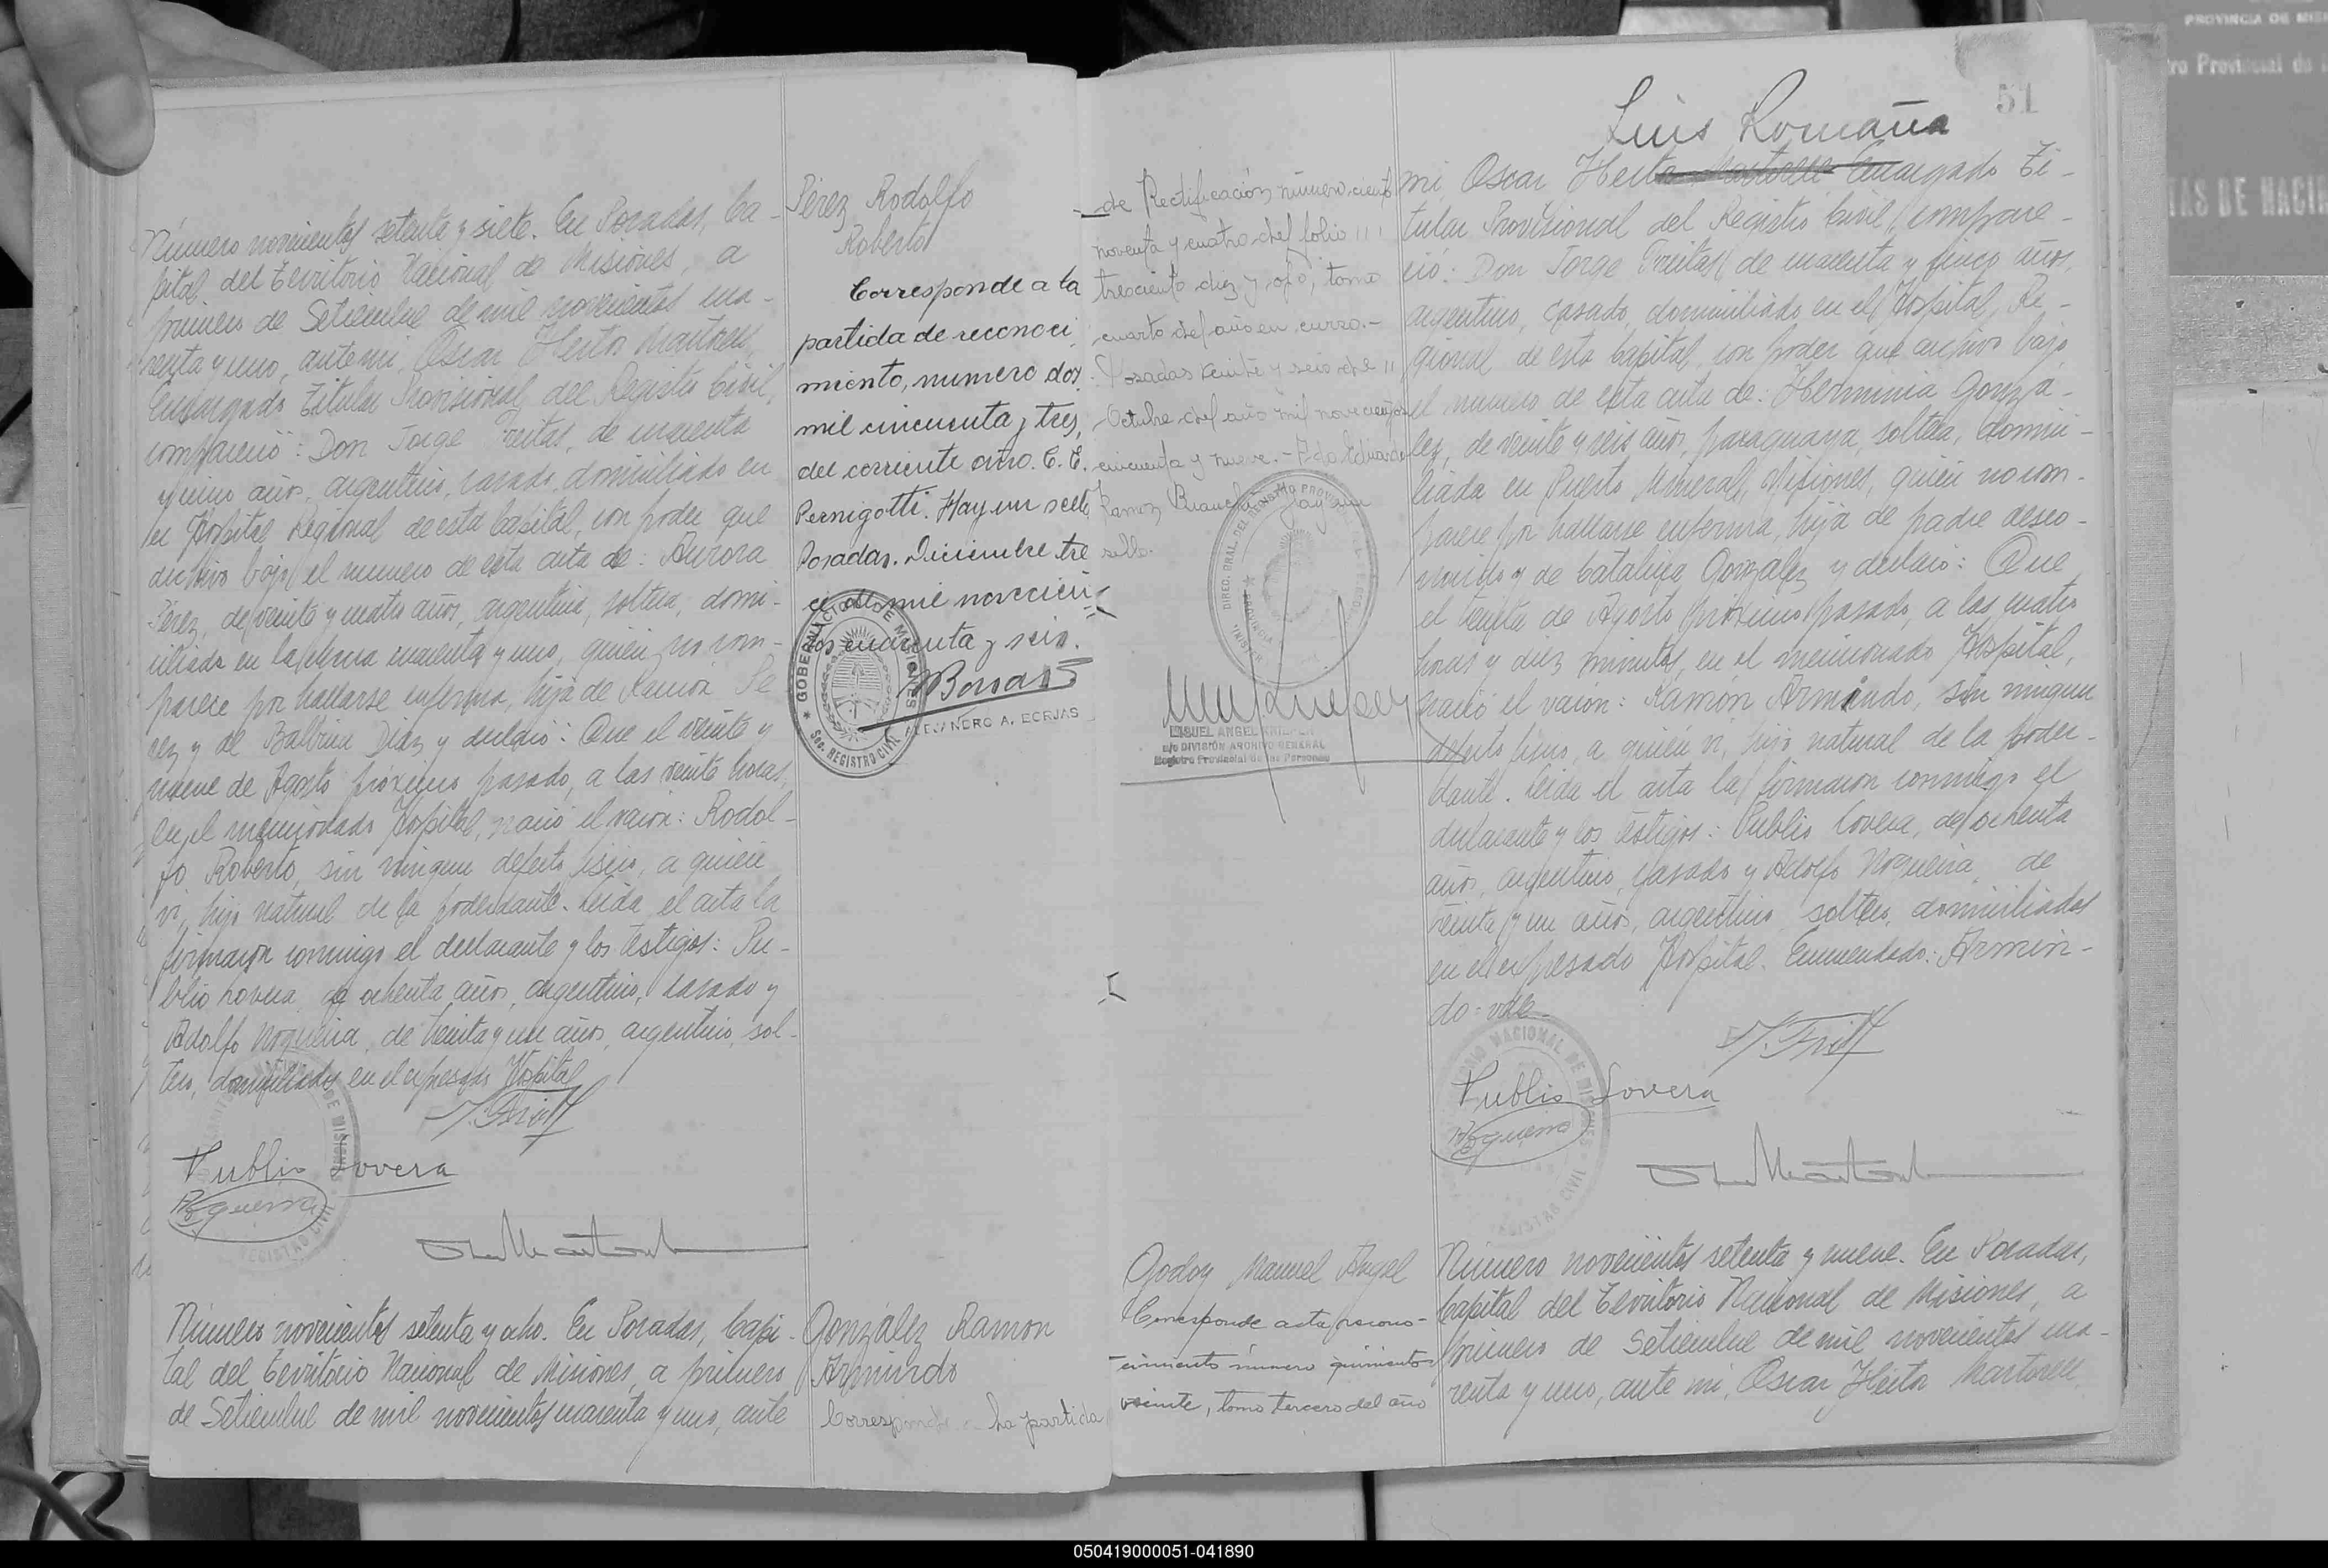 Número novecientos setenta y siete. En Posadas, Ca-
pital del Territorio Nacional de Misiones, a
primero de Setiembre de mil novecientos cua-
renta y uno, ante mi, Oscar Hector Martorell,
Encargado Titular Provisional del Registro Civil,
compareció: Don Jorge Freitas, de cuarenta
y cinco años, argentino, casado, domiciliado en
el Hospital Regional de esta Capital, con poder que
archivo bajo el numero de esta acta de: Aurora
Pérez, de veinte y cuatro años, argentina, soltera, domi-
ciliada en la chacra cuarenta y uno, quién no com-
parece por hallarse enferma, hija de Ramón Pé
rez y de Balbina Diaz y declaró: Que el veinte y
nueve de Agosto próximo pasado, a las veinte horas,
en el mencionado Hospital, nació el varon: Rodol-
fo Roberto, sin ningun defecto fisico, a quién
vi, hijo natural de la poderdante. Leida el acta la
firmaron conmigo el declarante y los testigos: Pu-
blio Lovera, de ochenta años, argentino, casado y
Adolfo Nogueira, de treinta y un años, argentino, sol-
tero, domiciliados en el expresado Hospital
J. Freitas
Publio Lovera
Número novecientos setenta y ocho. En Posadas, Capi-
tal del Territorio Nacional de Misiones, a primero
de Setiembre de mil novecientos cuarenta y uno, ante
Pérez Rodolfo
Roberto
Corresponde a la
partida de reconoci
miento, numero dos
mil cincuenta y tres,
del corriente año. E. E.
Pernigotti. Hay un sello
Posadas. Diciembre tre
ce de mil novecien
tos cuarenta y seis.
Borjas
ALEJANDRO A. BORJAS
GOBERNACION DE MISIONES
Sec. REGISTRO CIVIL
González Ramon
Armindo
Corresponde a la partida
51
Luis Romaña
de Rectificación número ciento
noventa y cuatro del folio
trescientos diez y ocho, tomo
cuarto del año en curso.-
Posadas veinte y seis de
Octubre del año mil novecientos
cincuenta y nueve.- Fdo Eduardo
Ramon Hay un
sello.
MIGUEL ANGEL
a/c DIVISIÓN ARCHIVO GENERAL
Registro Provincial de las Personas
Godoy Manuel Angel
Corresponde acta recono-
cimiento número quinientos
veinte, tomo tercero del año
mi, Oscar Hector Martorell Encargado Ti-
tular Provisional del Registro Civil, compare-
ció: Don Jorge Freitas, de cuarenta y cinco años,
argentino, casado, domiciliado en el Hospital Re-
gional de esta Capital, con poder que archivo bajo
el numero de esta acta de: Herminia Gonzá-
lez, de veinte y seis años, paraguaya, soltera, domici-
liada en Puerto Mineral, Misiones, quién no com-
parece por hallarse enferma, hija de padre desco-
nocido y de Catalina Gonzalez y declaró: Que
el treinta de Agosto próximo pasado, a las cuatro
horas y diez minutos, en el mencionado Hospital,
nació el varon: Ramón Armindo, sin ningun
defecto fisico, a quién vi, hijo natural de la poder-
dante. Leida el acta la firmaron conmigo el
declarante y los testigos: Publio Lovera, de ochenta
años, argentino, casado y Adolfo Nogueira, de
treinta y un años, argentino, soltero, domiciliados
en el expresado Hospital. Enmendado: Armin-
do: vale.
J. Freitas
Publio Lovera
Número novecientos setenta y nueve. En Posadas,
Capital del Territorio Nacional de Misiones, a
primero de Setiembre de mil novecientos cua-
renta y uno, ante mi, Oscar Hector Martorell,
PROVINCIA DE MISI
ro Provincial de
TAS DE NACI
050419000051-041890